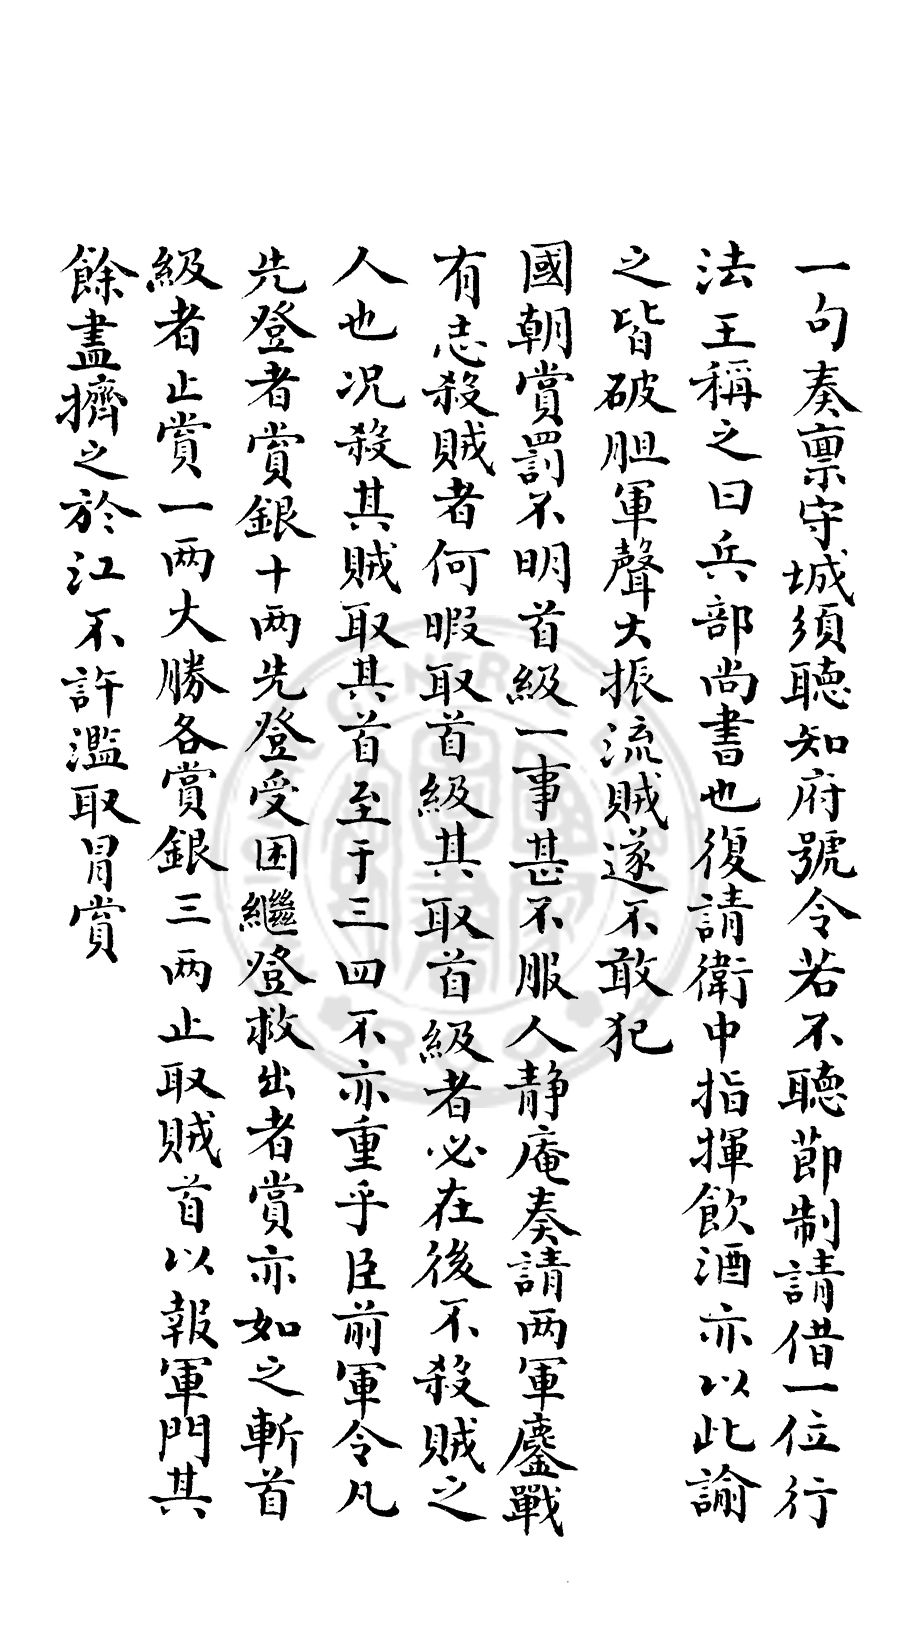 一句奏禀守城須聽知府號令若不聽節制請借一位行
法王稱之曰兵部尚書也復請衛中指揮飲酒亦以此諭
之皆破胆軍聲大振流賊遂不敢犯
國朝賞罰不明首級一事甚不服人静庵奏請两軍鏖戰
有志殺賊者何暇取首級其取首級者必在後不殺賊之
人也况殺其賊取其首至于三四不亦重乎臣前軍令凡
先登者賞銀十两先登受困繼登救出者賞亦如之斬首
級者止賞一两大勝各賞銀三两止取賊首以報軍門其
餘盡擠之於江不許濫取冐賞